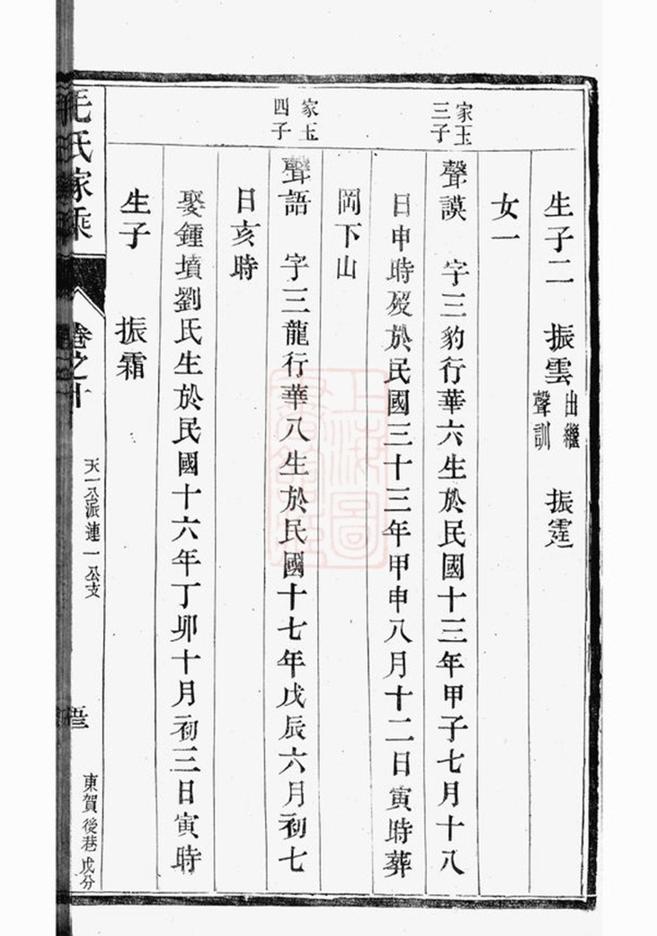 生子二 振雲 出繼聲訓 振霆
女一
家玉三子
聲謨 字三豹行華六生於民國十三年甲子七月十八
日申時歿於民國三十三年甲申八月十二日寅時葬
岡下山
家玉四子
聲語 字三龍行華八生於民國十七年戊辰六月初七
日亥時
娶鍾墳劉氏生於民國十六年丁卯十月初三日寅時
生子 振霜
毛氏家乘
卷之十
天一公派連一公支
東賀後巷戊分